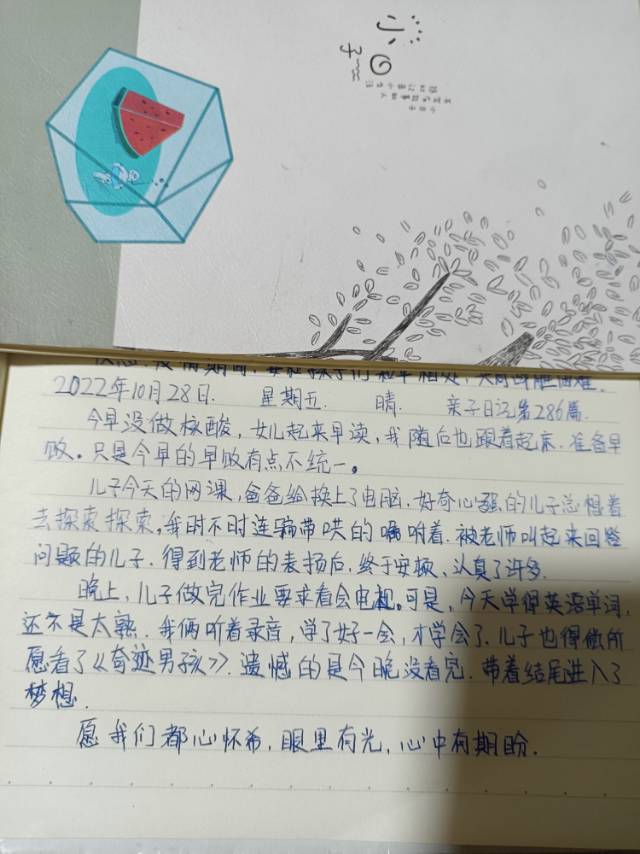 小日子
2022年10月28日. 星期五. 晴. 亲子日记第286篇.
今早没做核酸,女儿起来早读,我随后也跟着起床.准备早
饭。只是今早的早饭有点不统一。
儿子今天的网课,爸爸给换上了电脑,好奇心强的儿子总想着
去探索探索,我时不时连骗带哄的嘱咐着.被老师叫起来回答
问题的儿子.得到老师的表扬后,终于安顿、认真了许多.
晚上,儿子做完作业要求看会电视。可是,今天学得英语单词,
还不是太熟.我俩听着录音,学了好一会,才学会了.儿子也得偿所
愿看了《奇迹男孩》.遗憾的是今晚没看完.带着结尾进入了
梦想.
愿我们都心怀希,眼里有光,心中有期盼.